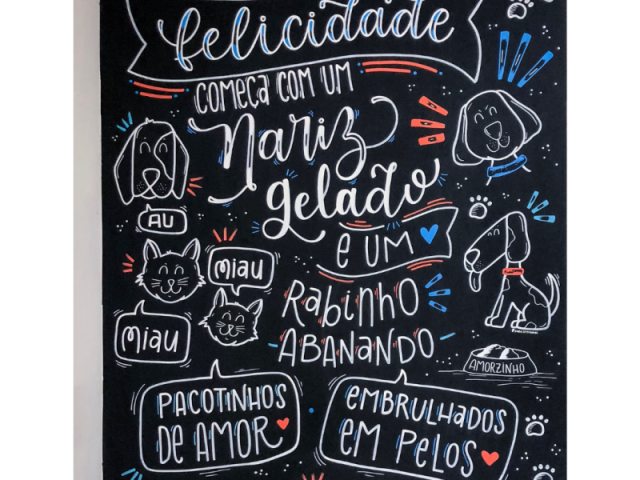 felicidade
COMEÇA COM UM
Nariz
gelado
E UM
Rabinho
ABANANDO
AU
MIAU
MIAU
AMORZINHO
PACOTINHOS
DE AMOR
EMBRULHADOS
EM PELOS